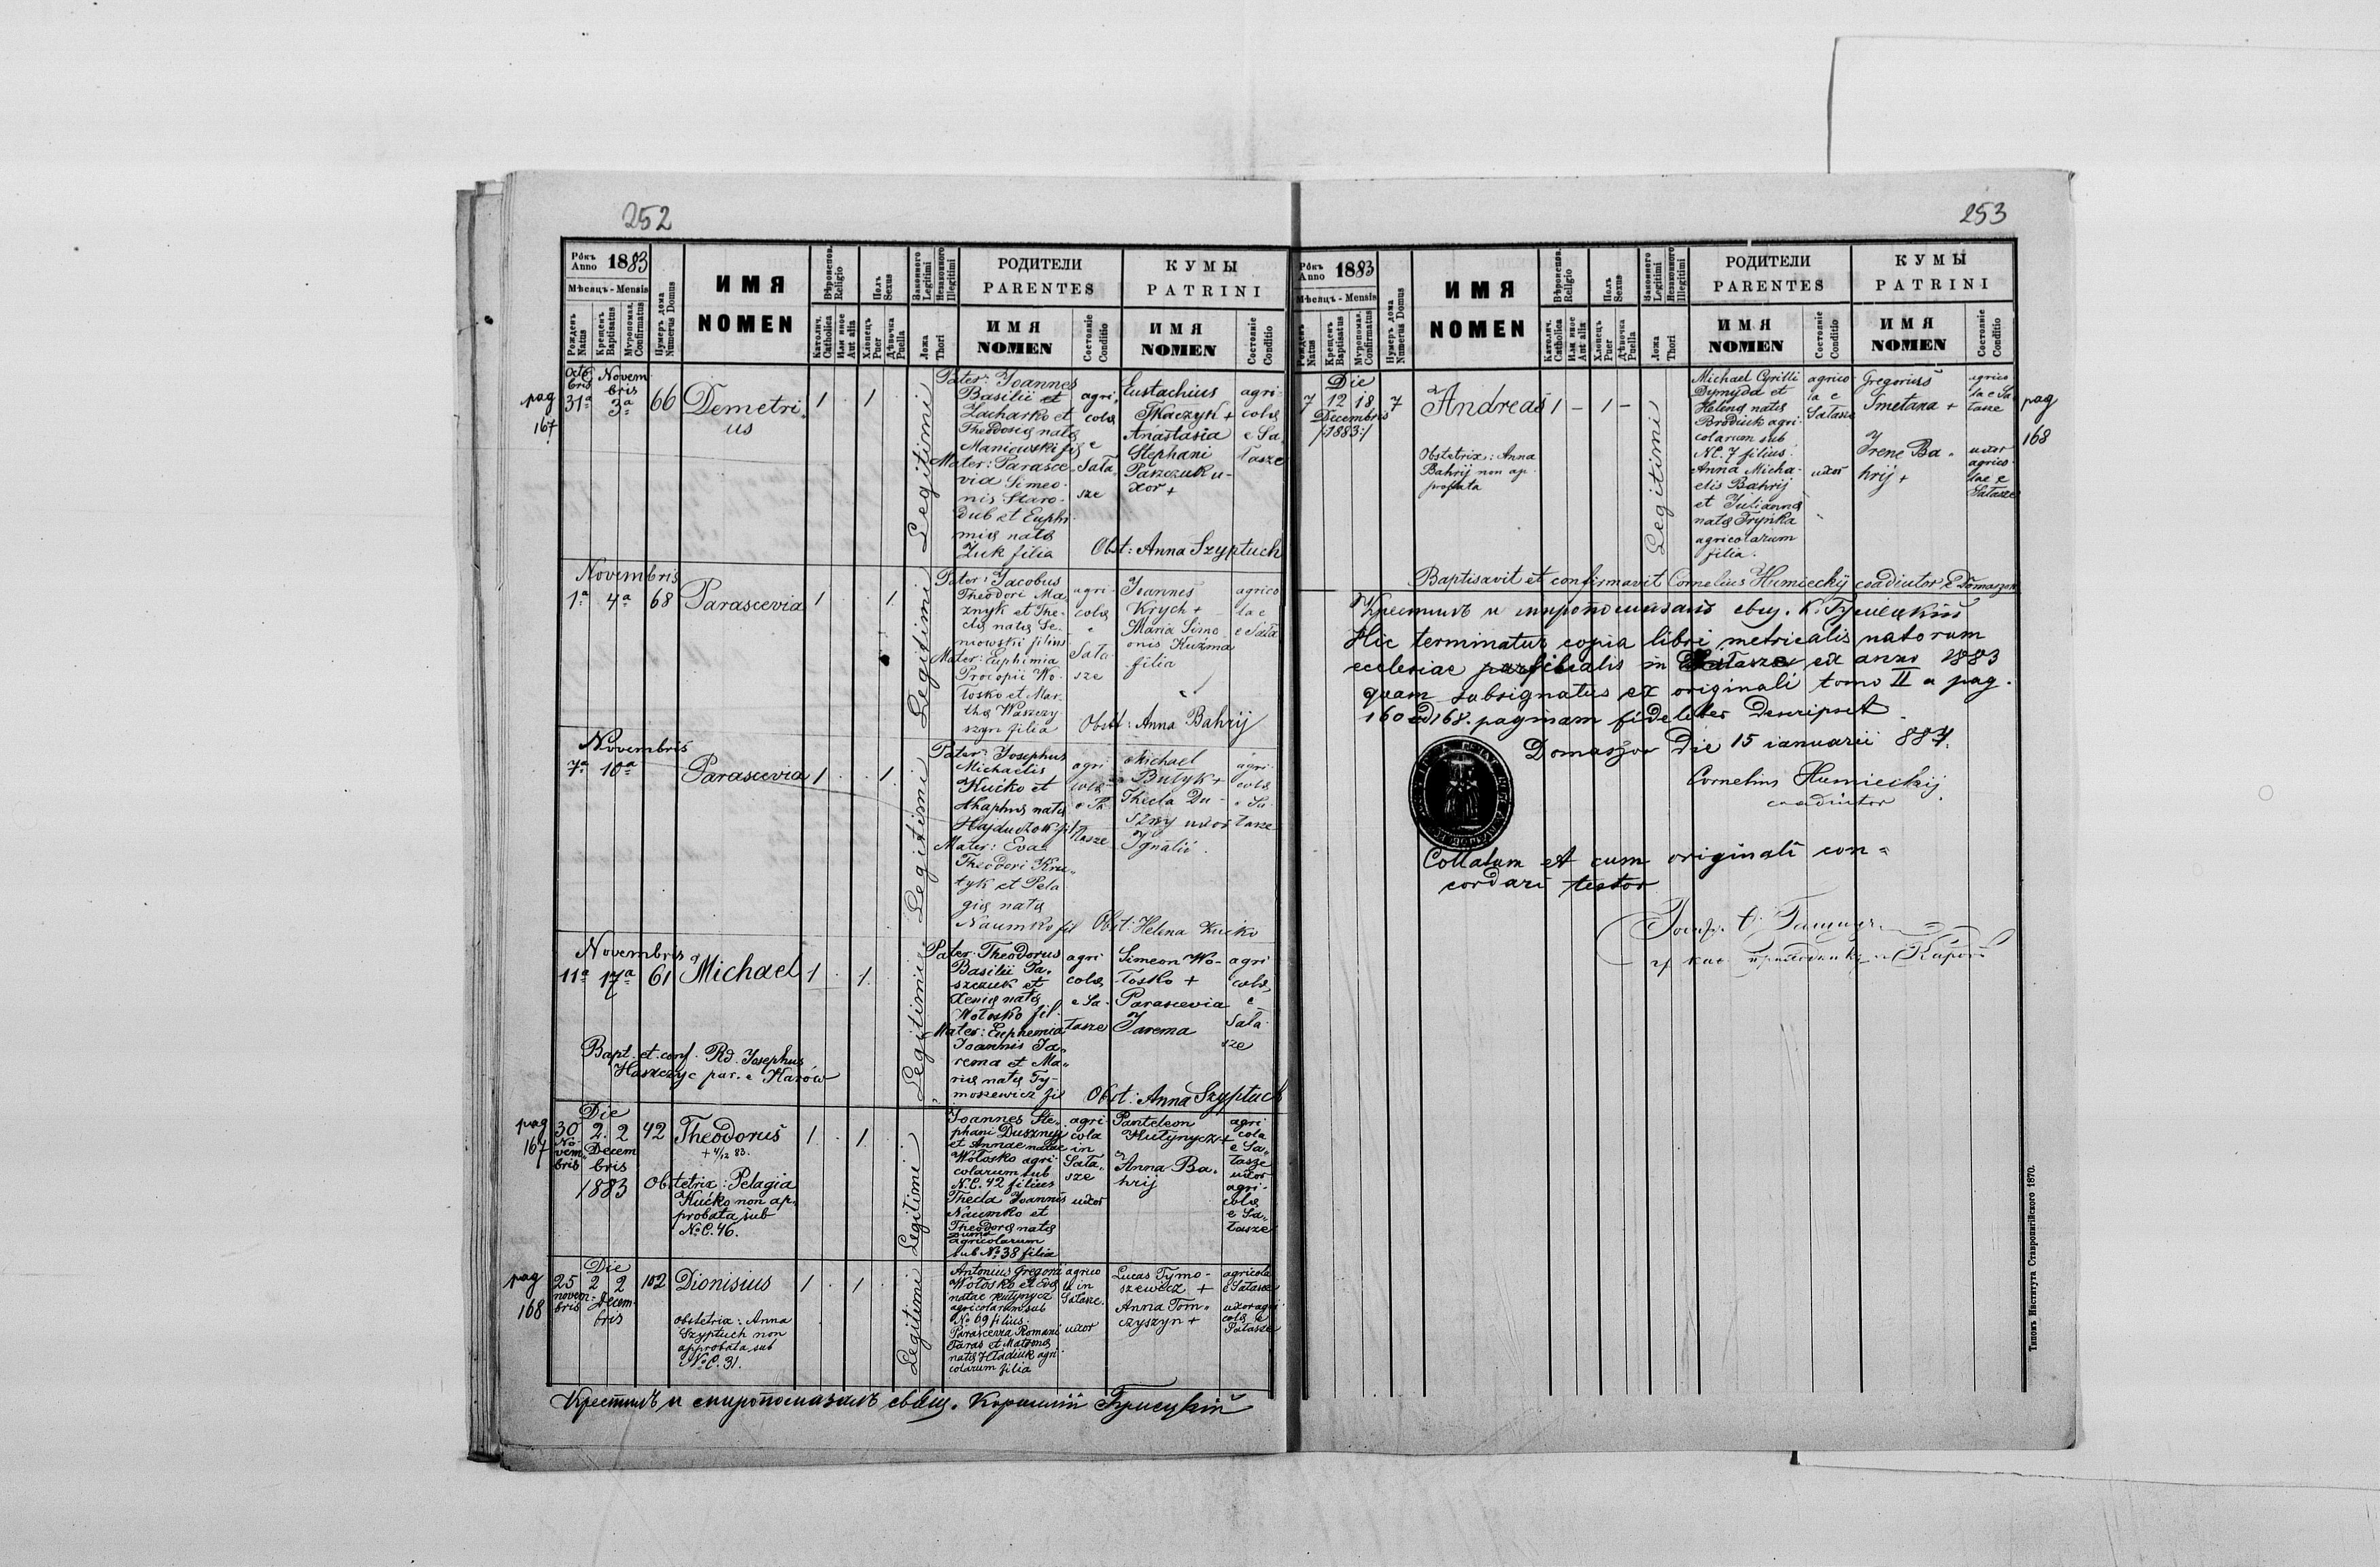 252
Рôкъ Anno 1883
Мѣсяцъ - Mensis
Рожденъ Natus
Крещенъ Baptisatus
Мѵропомаз. Confirmatus
Нумеръ дома Numerus Domus
ИМЯ
NOMEN
Вѣроиспов. Religio
Католич. Catholica
Или иное Aut alia
Полъ Sexus
Хлопецъ Puer
Дѣвочка Puella
Законного Legitimi
Незаконного Illegitimi
Ложа Thori
РОДИТЕЛИ
PARENTES
ИМЯ
NOMEN
Состояніе Conditio
КУМЫ
PATRINI
ИМЯ
NOMEN
Состояніе Conditio
pag
167
Octo
bris
31ª
Novem
bris
3ª
66
Demetri
us
1 . 1 .
Legitimi
Pater: Joannes
Basilii et
Zacharko et
Theodosiæ natæ
Maniowski fil
Mater: Parasce
via Simeo-
nis Staro-
dub et Euphi
miæ natæ
Żuk filia
agri
colæ
e
Sała
sze
Eustachius
Tkaczyk +
Anastasia
Stephani
Paszczuk u-
xor +
agri-
colæ
e Sa
łasze
Obst: Anna Szyptuch
Novembris
1ª 4ª 68
Parascevia
1 . . 1
Legitimi
Pater: Jacobus
Theodori Ma
znyk et The-
clæ natæ Se-
niowskii filius
Mater: Euphimia
Procopii Wo-
łosko et Mar-
thæ Waszczy
szyn filia
agri-
colæ
e
Sała
sze
Joannes
Krych +
Maria Simo
onis Kuźma
filia
agrico
lae
e Sała
Obst: Anna Bahrij
Novembris
7ª 10ª
Parascevia
1 . . 1
Legitimi
Pater: Josephus
Michaelis
Kućko et
Ahaphiæ natæ
Hajduczok fil
Mater: Eva
Theodori Kru-
tyk et Pela
giæ natæ
Naumko fil
agri
colæ
e Sa
łasze
Michael
Butyk +
Thecla Du-
szny uxor
Ignatii
agri-
colæ
e Sa-
łasze
Obst: Helena Kućko
Novembris
11ª 17ª 61
Michael
1 . 1 .
Legitimi
Pater: Theodorus
Basilii Pa-
szczuk et
Xeniæ natæ
Wołosko fil.
Mater: Euphemia
Joannis Ja-
rema et Ma-
riæ natæ Ty-
moszewicz fil
agri
colæ
e Sa-
łasze
Simeon Wo-
łosko +
Parascevia
Jarema
agri
colæ
e
Sała
sze
Bapt. et conf. Rd. Josephus
Haszczyc par. e Karów
Obst: Anna Szyptuch
pag
167
Die
30 2. 2
No-
vem
bris
Decem
bris
1883
42
Theodorus
+ 4/12 83.
1 . 1 .
Obstetrix: Pelagia
Kućko non ap-
probata sub
No C. 46.
Legitimi
Joannes Ste-
phani Dusznyj
et Annae natae
Wołosko agri-
colarum sub
N.C. 42 filius
Thecla Joannis
Naumko et
Theodoræ natæ
Duma
agricolarum
sub No 38 filia
agri-
cola
in
Sała-
sze
uxor
Panteleon
Hutynycz +
Anna Ba-
hrij
agri
cola
e Sa-
łasze
uxor
agri-
colæ
e Sa-
łasze
pag
168
Die
25 2 2
novem-
bris
Decem
bris
102
Dionisius
1 . 1
obstetrix: Anna
Szyptuch non
approbata sub
No C. 31.
Legitimi
Antonius Gregorii
Wołosko et Evæ
natae Hutynycz
agricolarum sub
No 69 filius.
Parascevia Romani
Taras et Matronæ
natæ Hładiuk agri-
colarum filia
agrico
la in
Sałasze.
uxor
Lucas Tymo-
szewicz +
Anna Tom-
czyszyn +
agricola
e Sałasze
uxor agri
colæ e
Sałasze
Крестилъ и миропомазалъ свящ. Корнилій Гумецкій
253
Рôкъ Anno 1883
Мѣсяцъ - Mensis
Рожденъ Natus
Крещенъ Baptisatus
Мѵропомаз. Confirmatus
Нумеръ дома Numerus Domus
ИМЯ
NOMEN
Вѣроиспов. Religio
Католич. Catholica
Или иное Aut alia
Полъ Sexus
Хлопецъ Puer
Дѣвочка Puella
Законного Legitimi
Незаконного Illegitimi
Ложа Thori
РОДИТЕЛИ
PARENTES
ИМЯ
NOMEN
Состояніе Conditio
КУМЫ
PATRINI
ИМЯ
NOMEN
Состояніе Conditio
Die
7 12 18 7
Decembris
/:1883:/
Andreas
1 - 1 -
Obstetrix: Anna
Bahrij non ap-
probata
Legitimi
Michael Cyrilli
Dymyda et
Helenæ natæ
Brodiuk agri-
colarum sub
N.C. 7 filius.
Anna Micha-
elis Bahrij
et Juliannæ
natæ Fryńka
agricolarum
filia.
agrico-
la e
Sałasze
uxor
Gregorius
Smetana +
Irene Ba-
hrij +
agrico
la e Sa
łasze
uxor
agrico-
lae e
Sałasze
pag
168
Baptisavit et confirmavit Cornelius Humieckij coadiutor e Domaszow
Крестилъ и миропомазалъ свящ. К. Гумецкій
Hic terminatur copia libri metricalis natorum
ecclesiae filialis in Sałasze ex anno 1883
quam subsignatus ex originali tomo II a pag.
160 ad 168. paginam fideliter descripsit
Domaszow die 15 ianuarii 884.
Cornelius Humieckij
coadiutor
Collatum et cum originali con-
cordari testor
Типомъ Института Ставропигійского 1870.